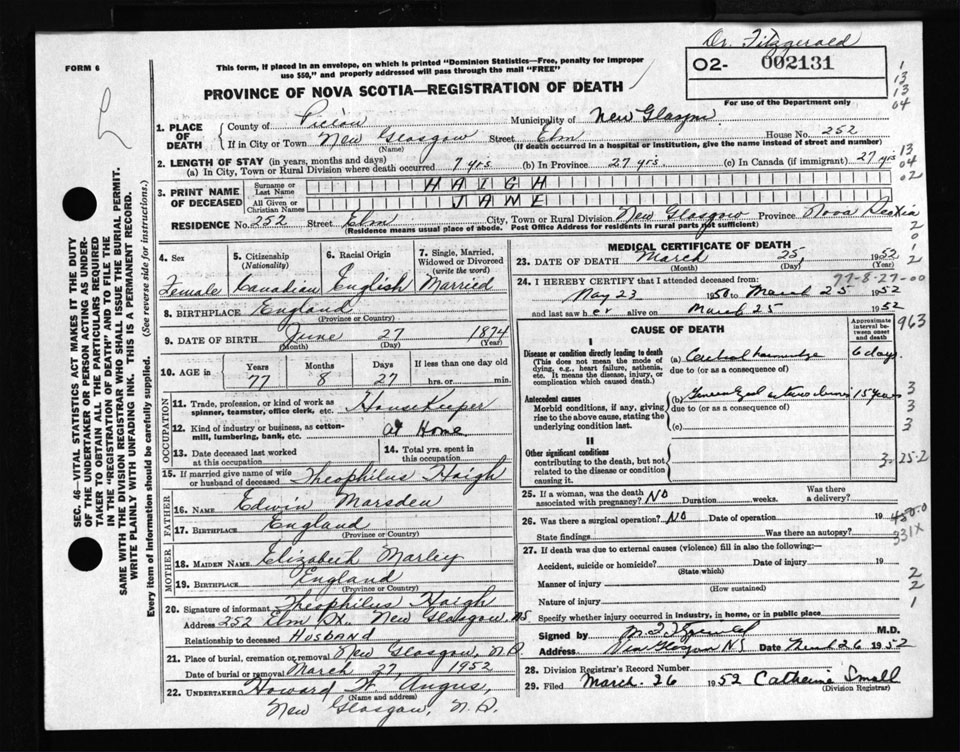 Dr. Fitzgerald
FORM 6
This form, if placed in an envelope, on which is printed "Dominion Statistics—Free, penalty for improper
use $50," and properly addressed will pass through the mail "FREE"
02- 002131
For use of the Department only
PROVINCE OF NOVA SCOTIA—REGISTRATION OF DEATH
1. PLACE OF DEATH
County of Pictou Municipality of New Glasgow
If in City or Town New Glasgow Street Elm House No. 252
(Name) (If death occurred in a hospital or institution, give the name instead of street and number)
2. LENGTH OF STAY (in years, months and days)
(a) In City, Town or Rural Division where death occurred 7 yrs (b) In Province 27 yrs. (c) In Canada (if immigrant) 27 yrs
3. PRINT NAME OF DECEASED
Surname or Last Name HAIGH
All Given or Christian Names JANE
RESIDENCE No. 252 Street Elm City, Town or Rural Division New Glasgow Province Nova Scotia
(Residence means usual place of abode. Post Office Address for residents in rural parts not sufficient)
4. Sex 5. Citizenship (Nationality) 6. Racial Origin 7. Single, Married, Widowed or Divorced (write the word)
Female Canadian English Married
8. BIRTHPLACE England
(Province or Country)
9. DATE OF BIRTH June 27 1874
(Month) (Day) (Year)
10. AGE in Years Months Days If less than one day old
77 8 27 hrs. or min.
OCCUPATION
11. Trade, profession or kind of work as
spinner, teamster, office clerk, etc. HouseKeeper
12. Kind of industry or business, as cotton-
mill, lumbering, bank, etc. at Home
13. Date deceased last worked at this occupation 14. Total yrs. spent in this occupation
15. If married give name of wife
or husband of deceased Theophilus Haigh
FATHER
16. Name Edwin Marsden
17. Birthplace England
(Province or Country)
MOTHER
18. Maiden Name Elizabeth Marley
19. Birthplace England
(Province or Country)
20. Signature of informant Theophilus Haigh
Address 252 Elm St., New Glasgow, NS
Relationship to deceased Husband
21. Place of burial, cremation or removal New Glasgow, N.S.
Date of burial or removal March 27, 1952
22. Undertaker Howard W. Angus,
(Name and address)
New Glasgow, N.S.
MEDICAL CERTIFICATE OF DEATH
23. DATE OF DEATH March 25, 1952
(Month) (Day) (Year)
77-8-27-00
24. I HEREBY CERTIFY that I attended deceased from:
May 23 1950 to March 25 1952
and last saw her alive on March 25 1952
CAUSE OF DEATH
Approximate interval between onset and death
I
Disease or condition directly leading to death
(This does not mean the mode of dying, e.g., heart failure, asthenia, etc. It means the disease, injury, or complication which caused death.)
(a) Cerebral haemorrhage 6 days
due to (or as a consequence of)
Antecedent causes
Morbid conditions, if any, giving rise to the above cause, stating the underlying condition last.
(b) General arteriosclerosis 15 years
due to (or as a consequence of)
(c)
II
Other significant conditions
contributing to the death, but not related to the disease or condition causing it.
25. If a woman, was the death associated with pregnancy? No Duration weeks. Was there a delivery?
26. Was there a surgical operation? No Date of operation 19
State findings Was there an autopsy?
27. If death was due to external causes (violence) fill in also the following:—
Accident, suicide or homicide? Date of injury 19
(State which)
Manner of injury
(How sustained)
Nature of injury
Specify whether injury occurred in industry, in home, or in public place
Signed by M.D.
Address New Glasgow NS Date March 26 1952
28. Division Registrar's Record Number
29. Filed March. 26 1952 Catherine Small
(Division Registrar)
SEC. 46—VITAL STATISTICS ACT MAKES IT THE DUTY
OF THE UNDERTAKER OR PERSON ACTING AS UNDER-
TAKER TO OBTAIN ALL THE PARTICULARS REQUIRED
IN THE "REGISTRATION OF DEATH" AND TO FILE THE
SAME WITH THE DIVISION REGISTRAR WHO SHALL ISSUE THE BURIAL PERMIT.
WRITE PLAINLY WITH UNFADING INK. THIS IS A PERMANENT RECORD.
Every item of information should be carefully supplied. (See reverse side for instructions.)
1
13
13
04
13
04
02
2
0
1
2
963
3
3
3
3-25-2
450-0
331X
2
2
1